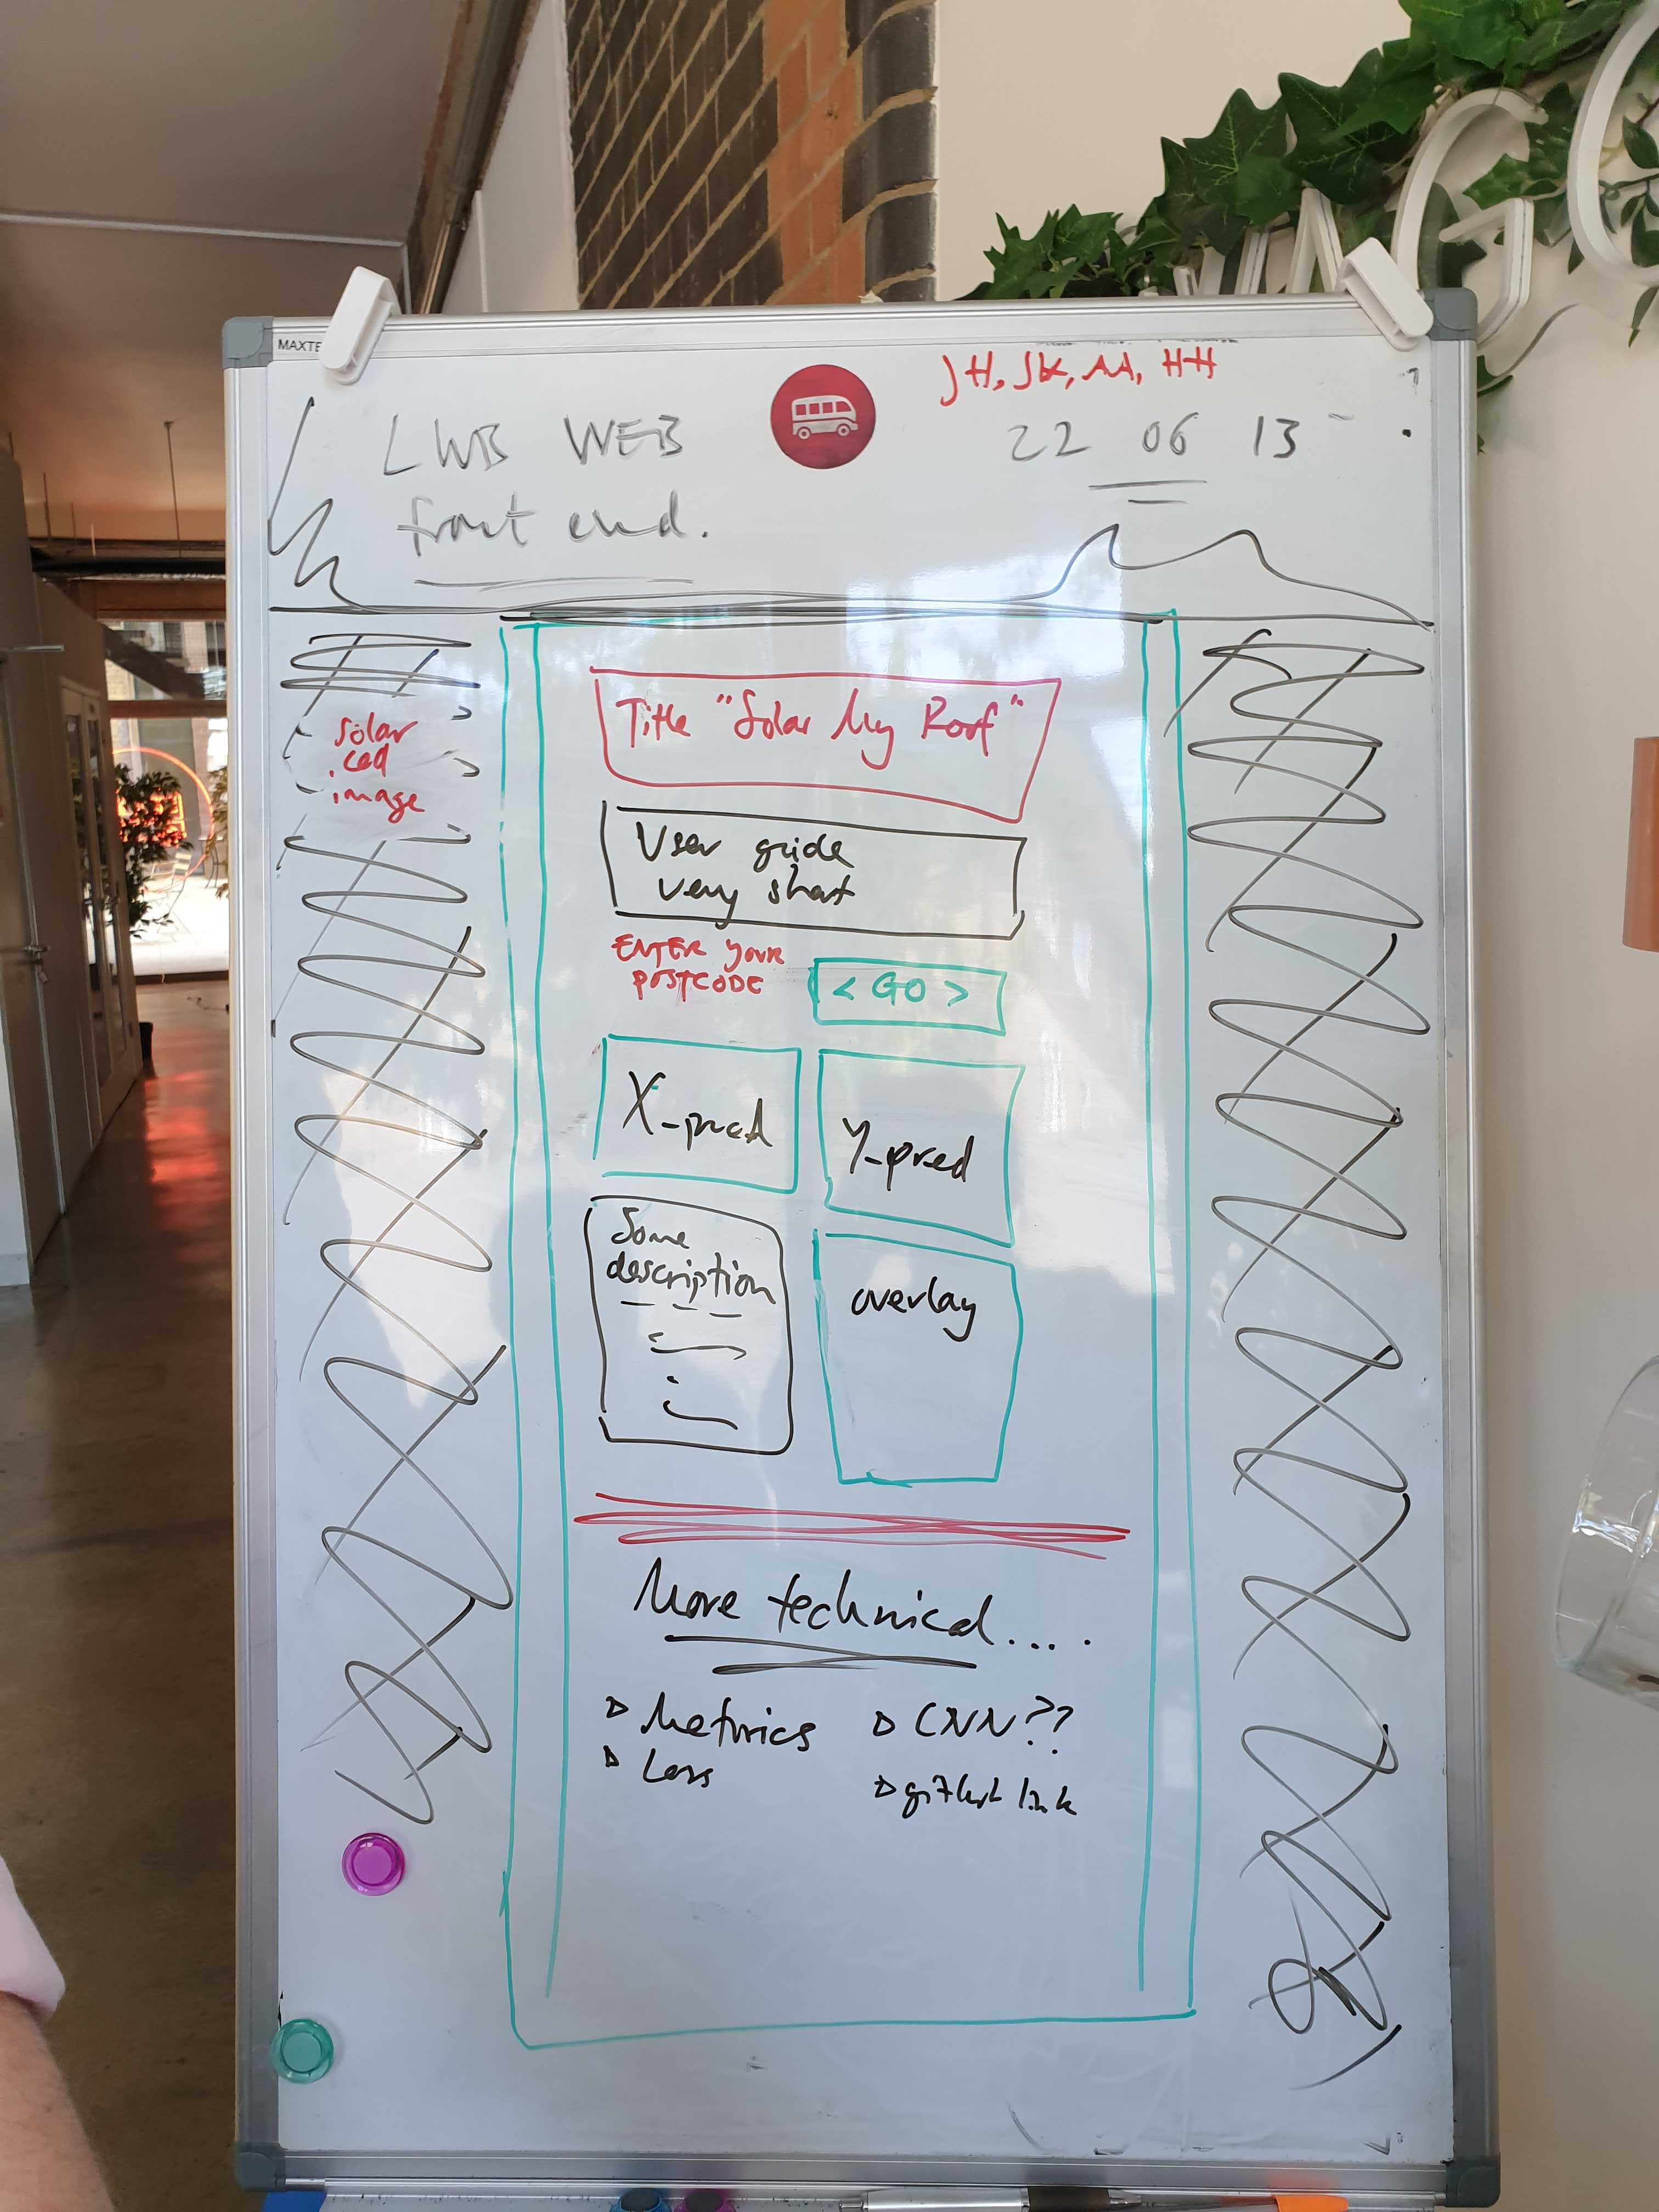 MAXTE
JH, SK, AA, HH
LWB WEB
front end.
22 06 13
Solar
.ced
image
Title "Solar My Roof"
User guide
very short
ENTER YOUR
POSTCODE
< GO >
X_pred
Y_pred
Some
description
overlay
More technical....
Metrics
Loss
CNN??
link